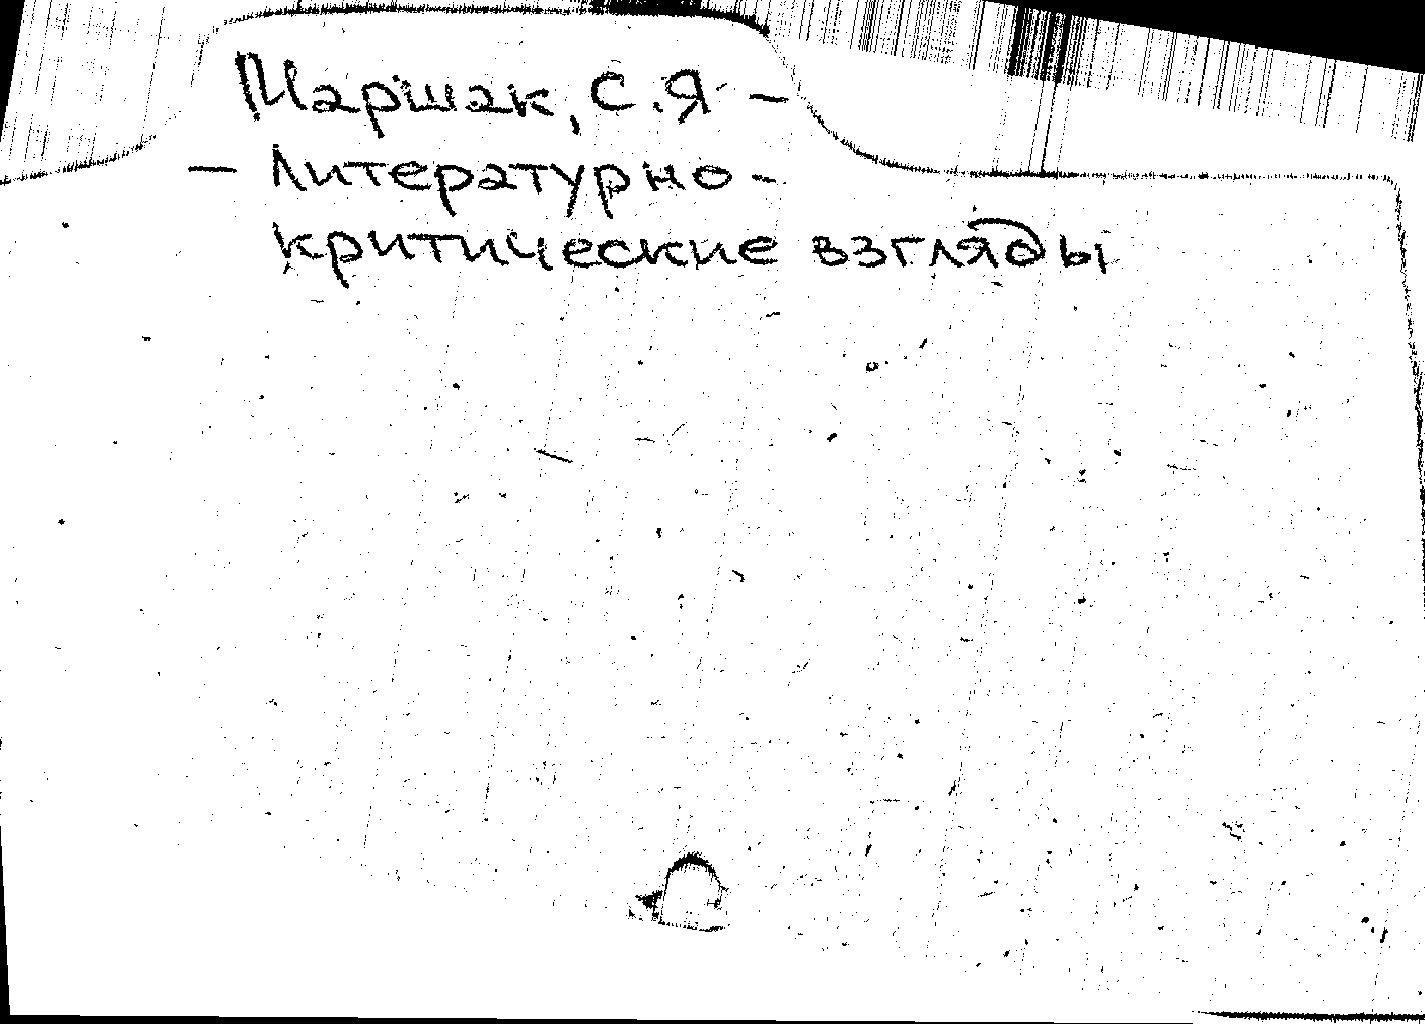 Маршак, С.Я —
— Литературно-
критические взгляды